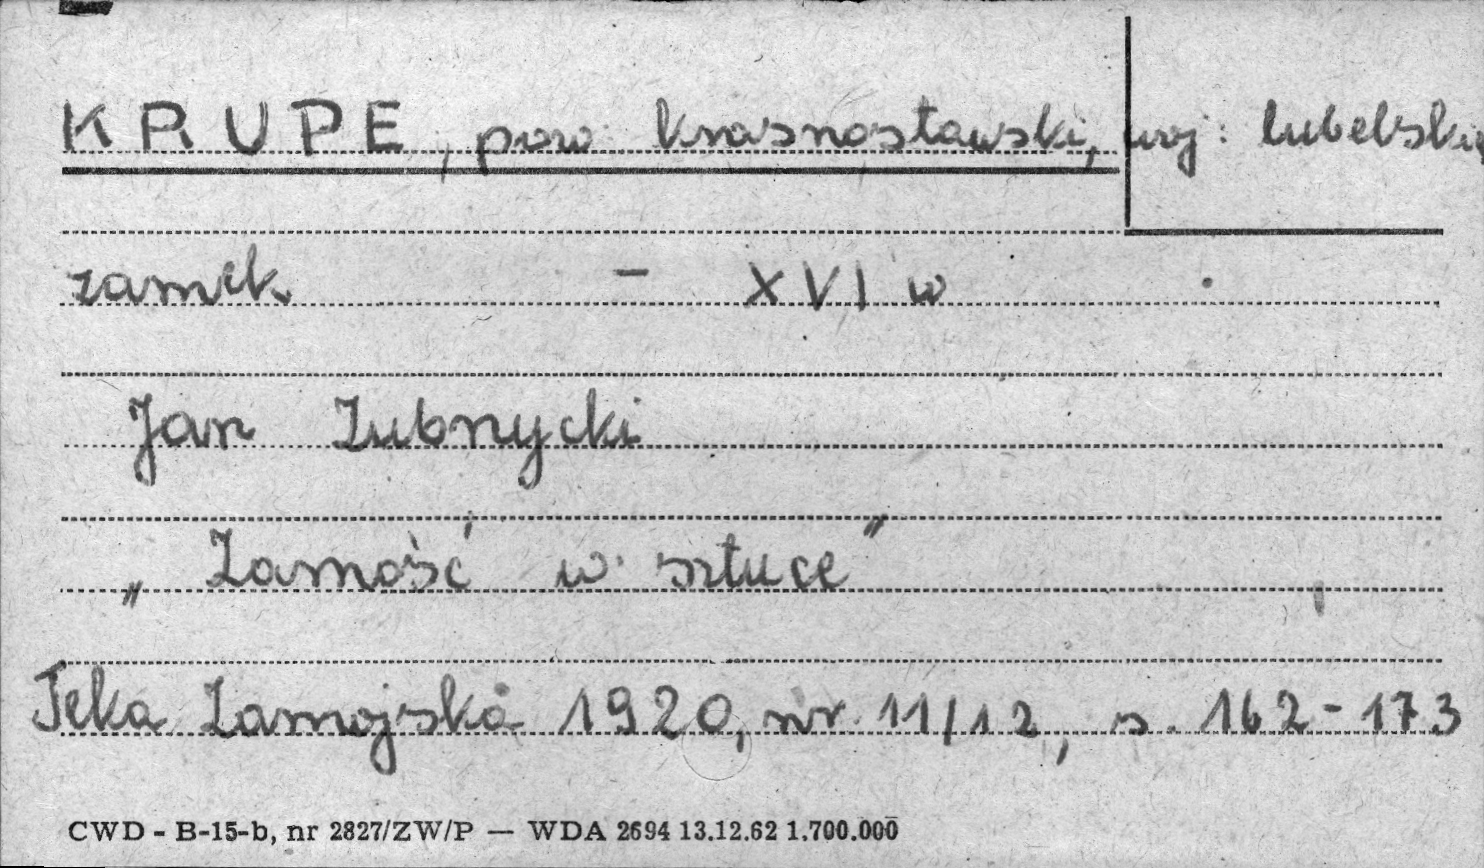 KRUPE, pow. krasnostawski, woj: lubelskie
zamek – XVI w.
Jan Zubnycki
„Zamość w sztuce"
Teka Zamojska 1920, nr. 11/12, s. 162-173
CWD - B-15-b, nr 2827/ZW/P — WDA 2694 13.12.62 1.700.000